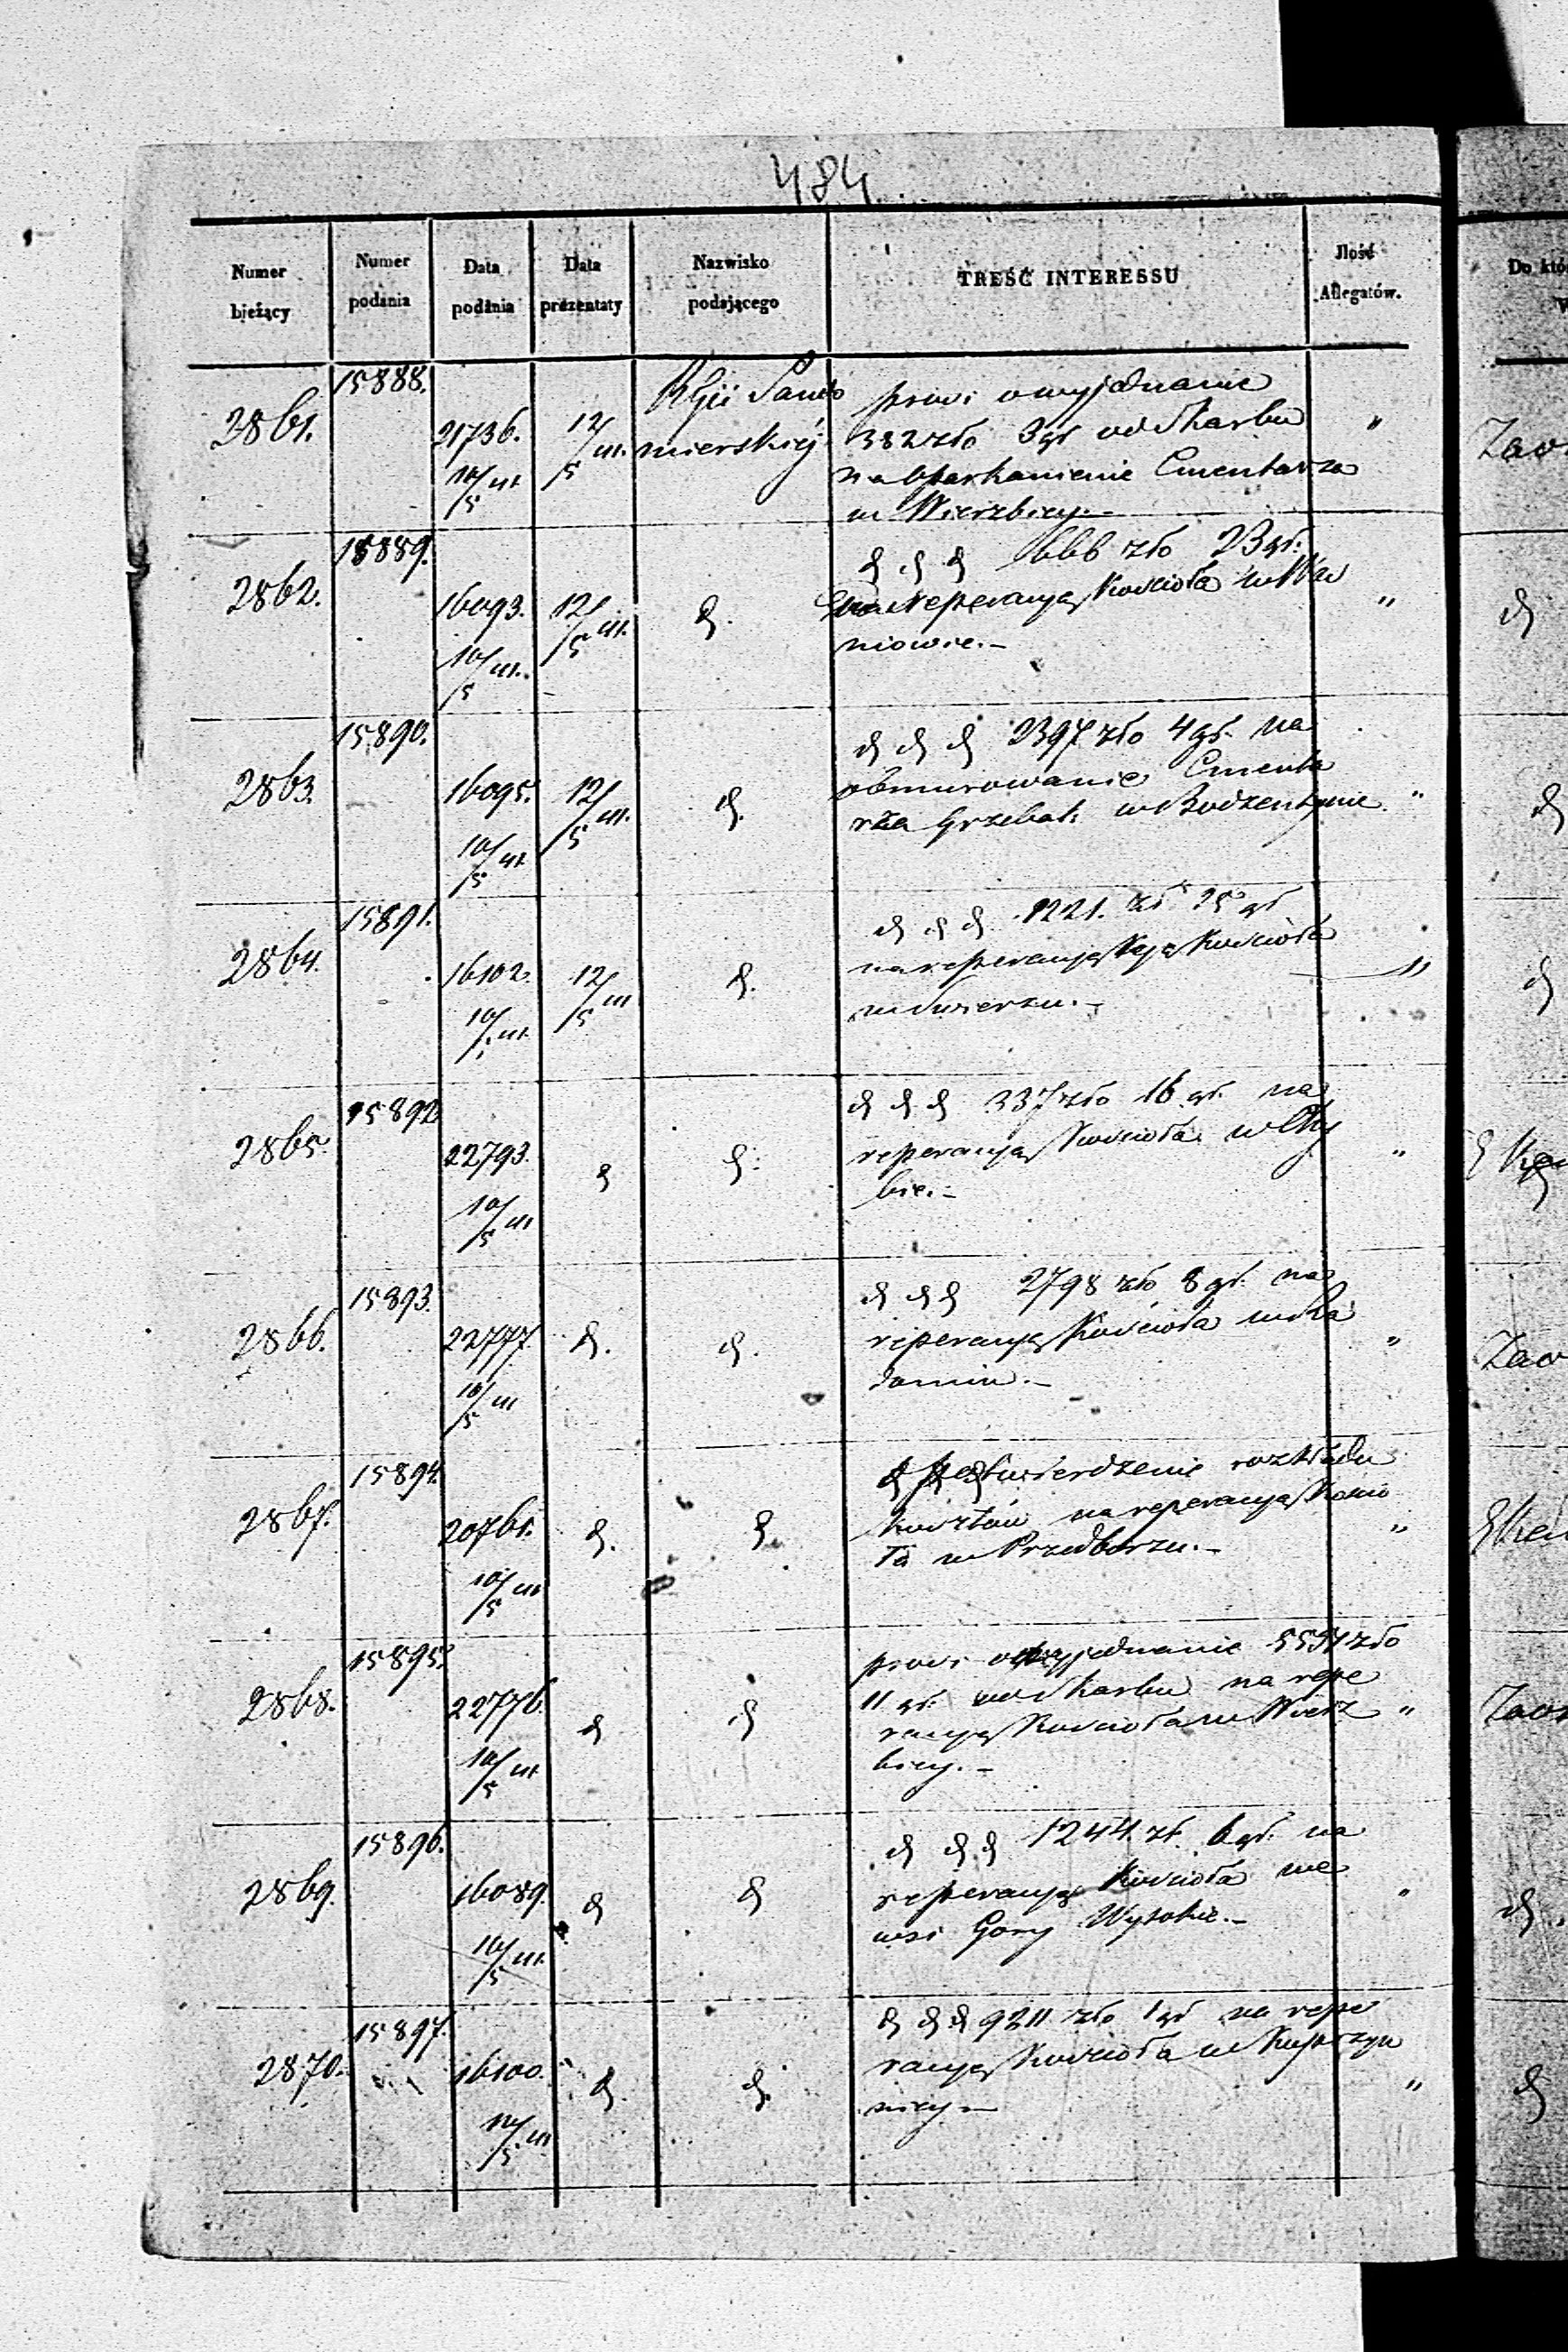 484.
Numer bieżący
Numer podania
Data podania
Data prezentaty
Nazwisko podającego
TREŚĆ INTERESSU
Ilość Allegatów.
Do któ
2861.
15888.
21736. 10/5 m.
12/5 m.
Rgii Sando
mierskiej
prosi o wyjednanie
382 zło 3 gr od Skarbu
na oparkanienie Cmentarza
w Wierzbicy.-
"
Zao
2862.
15889.
16093. 10/5 m.
12/5 m.
d.
d d d 666 zło 23 gr.
na reperacyą Kościoła w
niowie.-
"
d
2863.
15890.
16095. 10/5 m.
12/5 m.
d.
d d d 2397 zło 4 gr. na
obmurowanie Cmenta
rza Grzebal. w Bodzentynie.
"
d
2864.
15891.
16102. 10/5 m.
12/5 m
d.
d d d 1221. zł 25 gr
na reperacyą Kościoła
w Swierzu.-
"
d
2865.
15892
22793. 10/5 m
d
d.
d d d 337 zło 16 gr. na
reperacyą Kościoła w Chy
bie.-
"
2866.
15893.
22777 10/5 m
d.
d.
d d d 2798 zło 8 gr. na
reperacyą Kościoła w Ra
domiu.-
"
Zao
2867.
15894.
20761. 10/5 m
d.
d.
potwierdzenie rozkładu
kosztów na reperacyą Kościo
ła w Przedborzu.-
"
2868.
15895.
22776. 10/5 m
d
d
prosi o wyjednanie 5534 zło
11 gr. od Skarbu na repe
racyą Kościoła w Wierz
bicy.-
"
Zao
2869.
15896.
16089. 10/5 m.
d
d
d d d 1244 zł. 6 gr. na
reperacyą Kościoła we
wsi Gory Wysokie.-
"
d.
2870.
15897.
16100. 10/5 m
d.
d.
d d d 9211 zło 1 gr na repe
racyą Kościoła w Kuprzyn
nicy.-
"
d